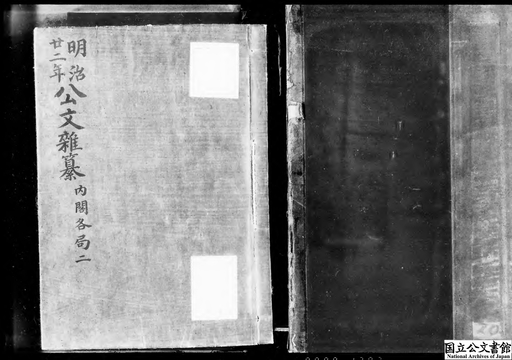 明治
廿二年
公文雑纂
内閣各局二
20
国立公文書館
National Archives of Japan